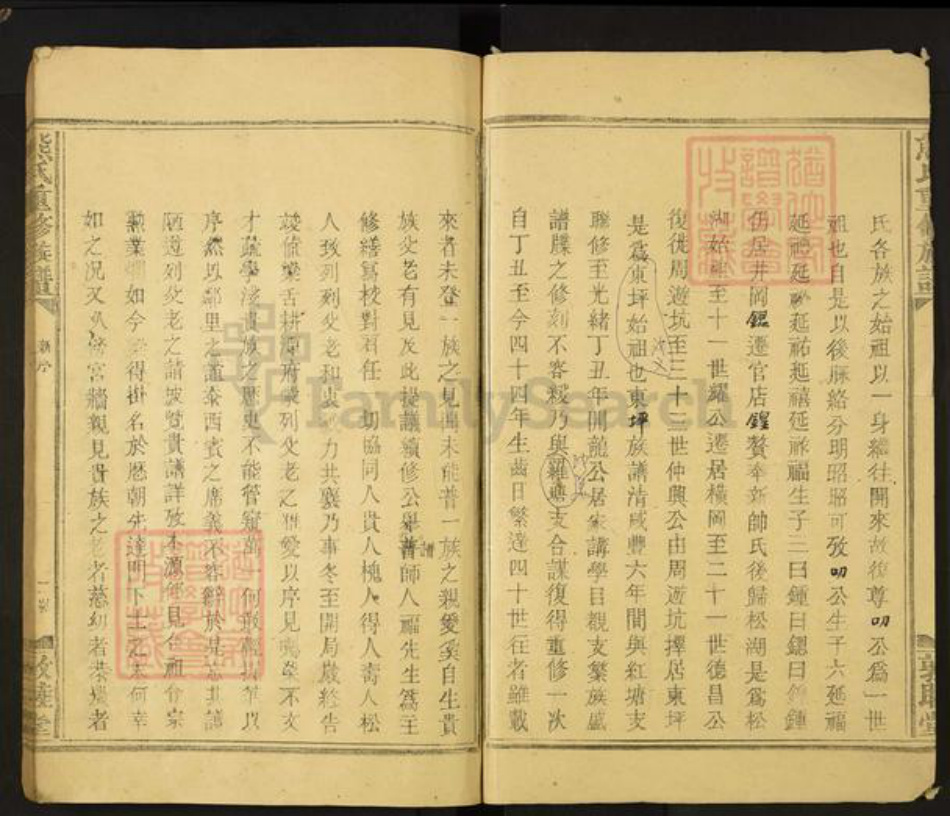 氏各族之始祖以一身繼往開來故復尊叨公爲一世
祖也自是以後脈絡分明昭昭可攷叨公生子六延福
延禮延延祐延禧延福生子三曰鍾曰鍶曰鍾
仍居井岡鍶遷官店鍟贅奉新帥氏後歸松湖是爲松
湖始至十一世耀公遷居橫岡至二十一世德昌公
復徙周遊坑至三十三世仲興公由周遊坑擇居東坪
是爲東坪始祖也東坪族譜清咸豐六年間與紅塘支
聯修至光緒丁丑年開龍公居家講學目覩支繁族盛
譜牒之修刻不容緩乃與羅塘支合謀復得重修一次
自丁丑至今四十四年生齒日繁達四十世往者雖載
來者未登一族之見聞未能普一族之親愛矣自生貴
族父老有見及此提議續修公舉普譜師人福先生爲主
修繕寫校對着任一切協同人貴人槐人得人壽人松
人致列列父老和衷力共襄乃事冬至開局歲終告
竣愉樂舌耕源府蒙列父老之雅愛以序見囑樂不文
才疏學淺貴族之歷史不能管窺萬一何敢
序然以鄰里之誼忝西賓之席義不容辭於是忘其譾
陋遵列父老之請披覽貴譜詳攷本源
勳業如今得掛名於歷朝先達門下士之末何幸
如之况又宮牆親見貴族之老者慈幼者恭壯者
熊氏重修族譜
新序
敦睦堂
FamilySearch